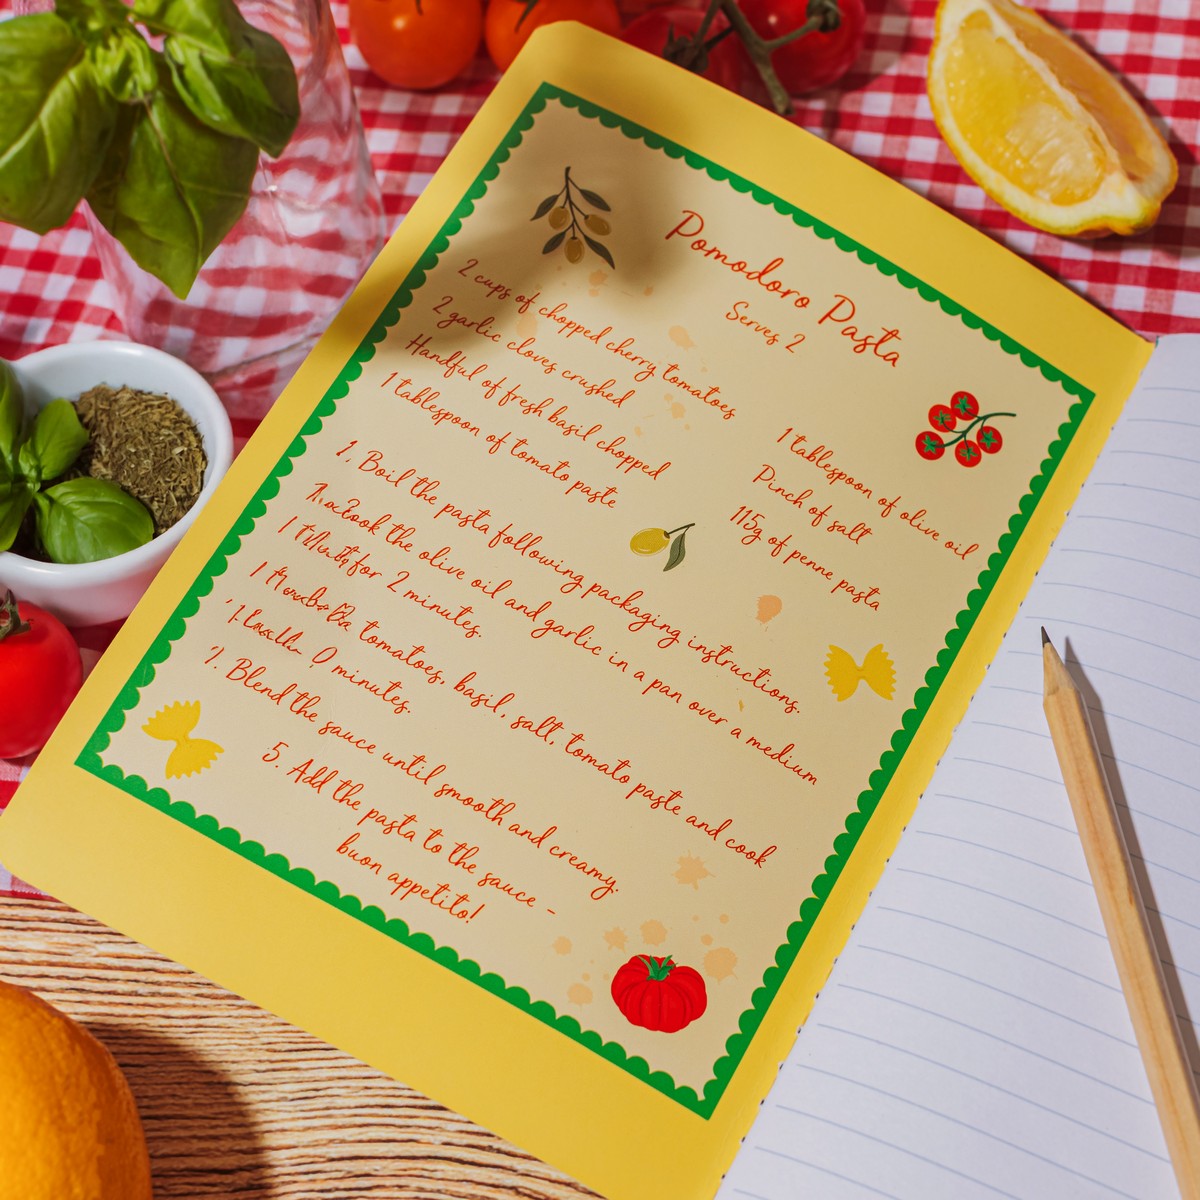 Pomodoro Pasta
Serves 2
2 cups of chopped cherry tomatoes
2 garlic cloves crushed
Handful of fresh basil chopped
1 tablespoon of tomato paste
1 tablespoon of olive oil
Pinch of salt
115g of penne pasta
1. Boil the pasta following packaging instructions.
the olive oil and garlic in a pan over a medium
for 2 minutes.
tomatoes, basil, salt, tomato paste and cook
minutes.
Blend the sauce until smooth and creamy.
5. Add the pasta to the sauce -
buon appetito!